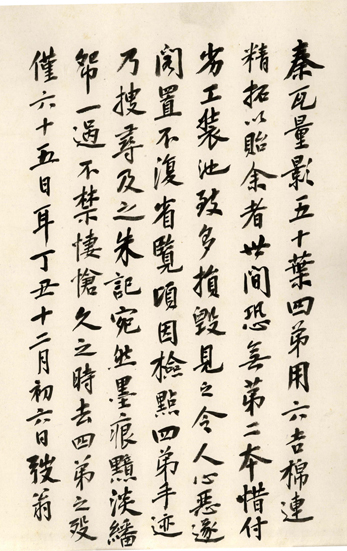 秦瓦量影五十葉四弟用六吉棉連
精拓以貽余者世間恐無第二本惜付
劣工裝池致多損毀見之令人心惡遂
閣置不復省覽頃因檢點四弟手迹
乃搜尋及之朱記宛然墨痕黯淡繙
帋一過不禁悽愴久之時去四弟之殁
僅六十五日耳丁丑十二月初六日弢翁